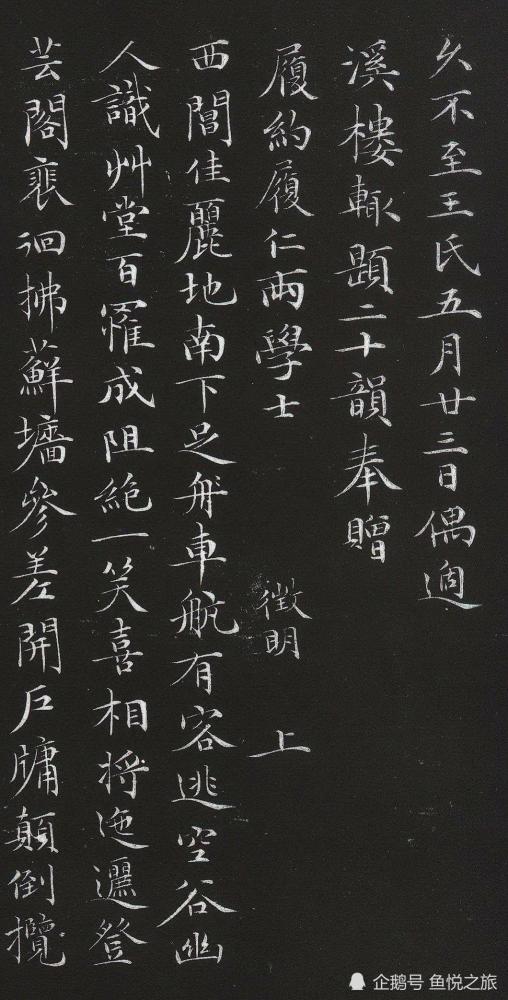 久不至王氏五月廿三日偶過
溪樓輒題二十韻奉贈
履約履仁兩學士 徵明 上
西閶佳麗地南下足舟車航有客逃空谷幽
人識艸堂百罹成阻絶一笑喜相將迤邐登
芸閣裵徊拂蘚墻參差開戶牗顛倒攬
企鹅号 鱼悦之旅